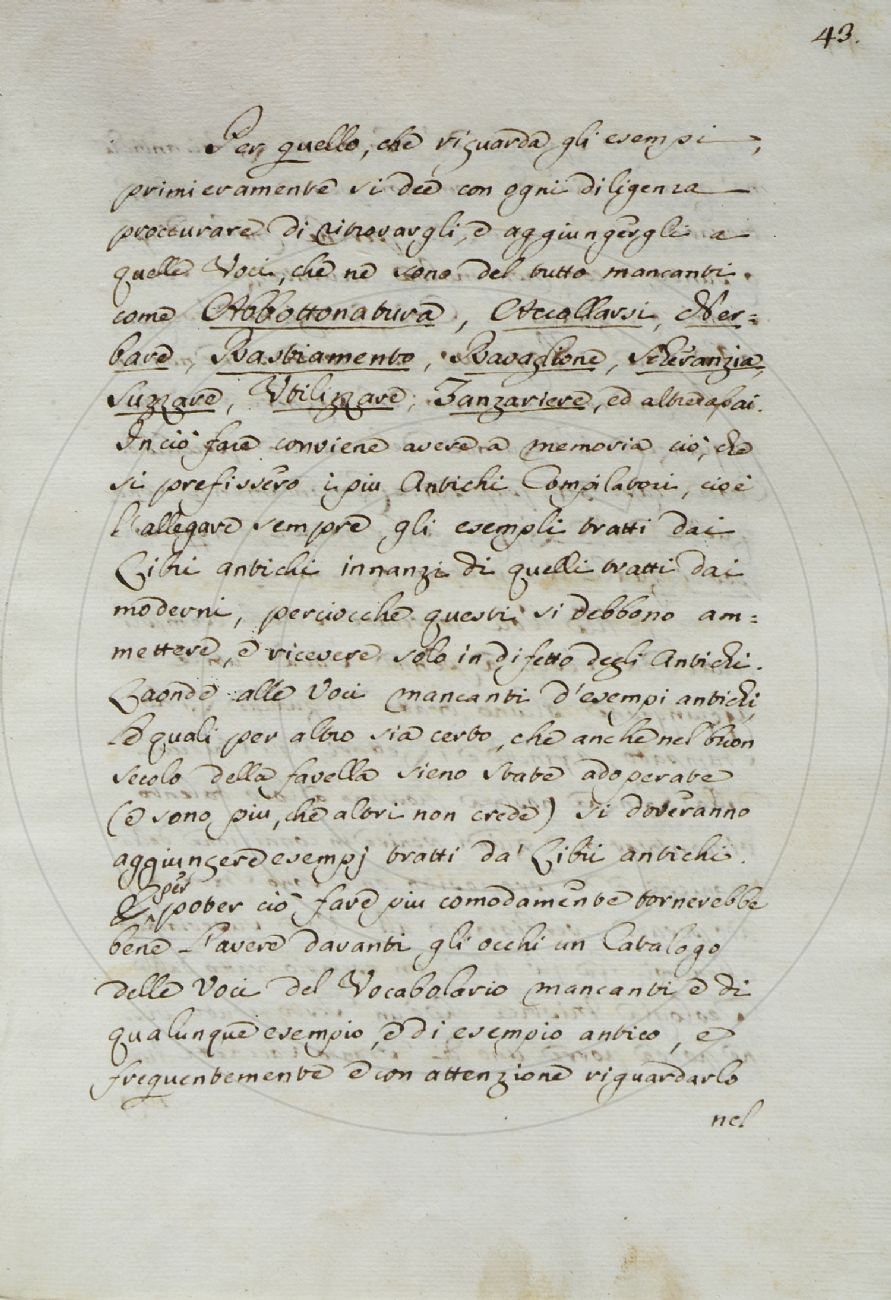 43.
Per quello, che riguarda gli esempi,
primieramente si dee con ogni diligenza
proccurare di ritrovargli, e aggiungergli a
quelle Voci, che ne sono del tutto mancanti.
come Abbottonatura, Accollarsi, Aer=
bare, Bastiamento, Bavaglione, Scheranzia,
Suzzare, Utilizzare, Zanzariere, ed altre
In ciò fare conviene avere a memoria ciò, che
si prefissero i più Antichi Compilatori, cioè
l'allegare sempre gli esempli tratti dai
Libri antichi innanzi di quelli tratti dai
moderni, perciocchè questi si debbono am=
mettere, e ricevere solo in difetto degli Antichi.
Laonde alle Voci mancanti d'esempi antichi,
le quali per altro sia certo, che anche nel buon
secolo della favella sieno state adoperate
(e sono più, che altri non crede) si doveranno
aggiungere esempj tratti da' Libri antichi.
E per poter ciò fare più comodamente tornerebbe
bene l'avere davanti gli occhi un Catalogo
delle Voci del Vocabolario mancanti e di
qualunque esempio, e di esempio antico, e
frequentemente e con attenzione riguardarlo
nel